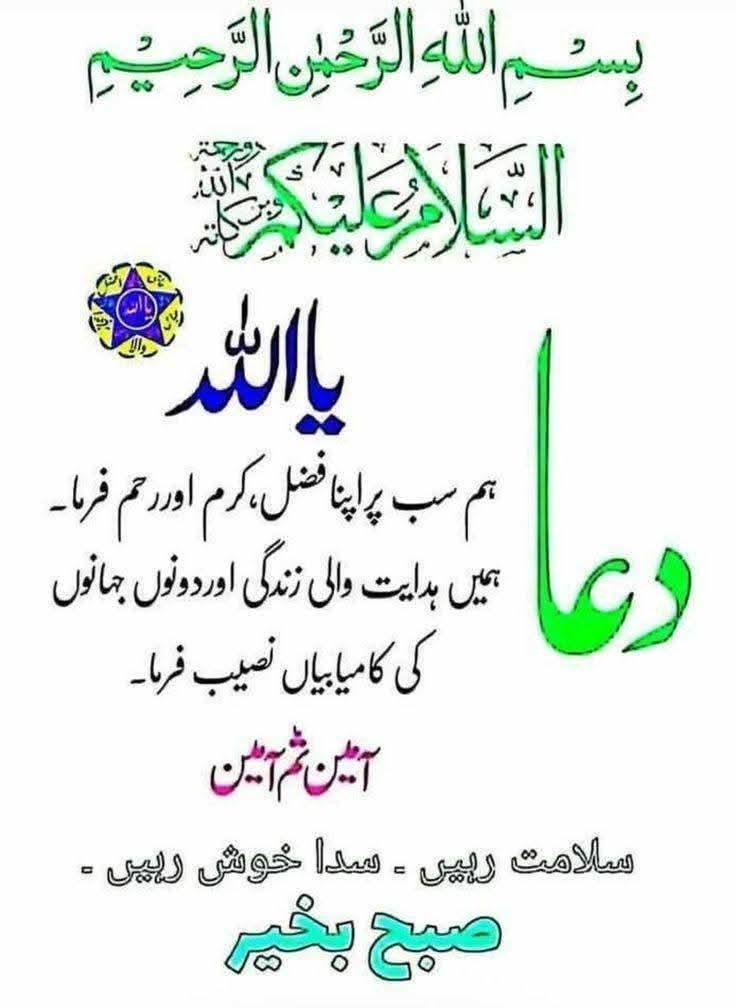 بِسْمِ اللهِ الرَّحْمٰنِ الرَّحِيْمِ
السَّلَامُ عَلَيْكُمْ ورحمة الله وبركاته
یا اللہ
دعا
ہم سب پر اپنا فضل، کرم اور رحم فرما۔
ہمیں ہدایت والی زندگی اور دونوں جہانوں
کی کامیابیاں نصیب فرما۔
آمین ثم آمین
سلامت رہیں ۔ سدا خوش رہیں ۔
صبح بخیر
یا اللہ